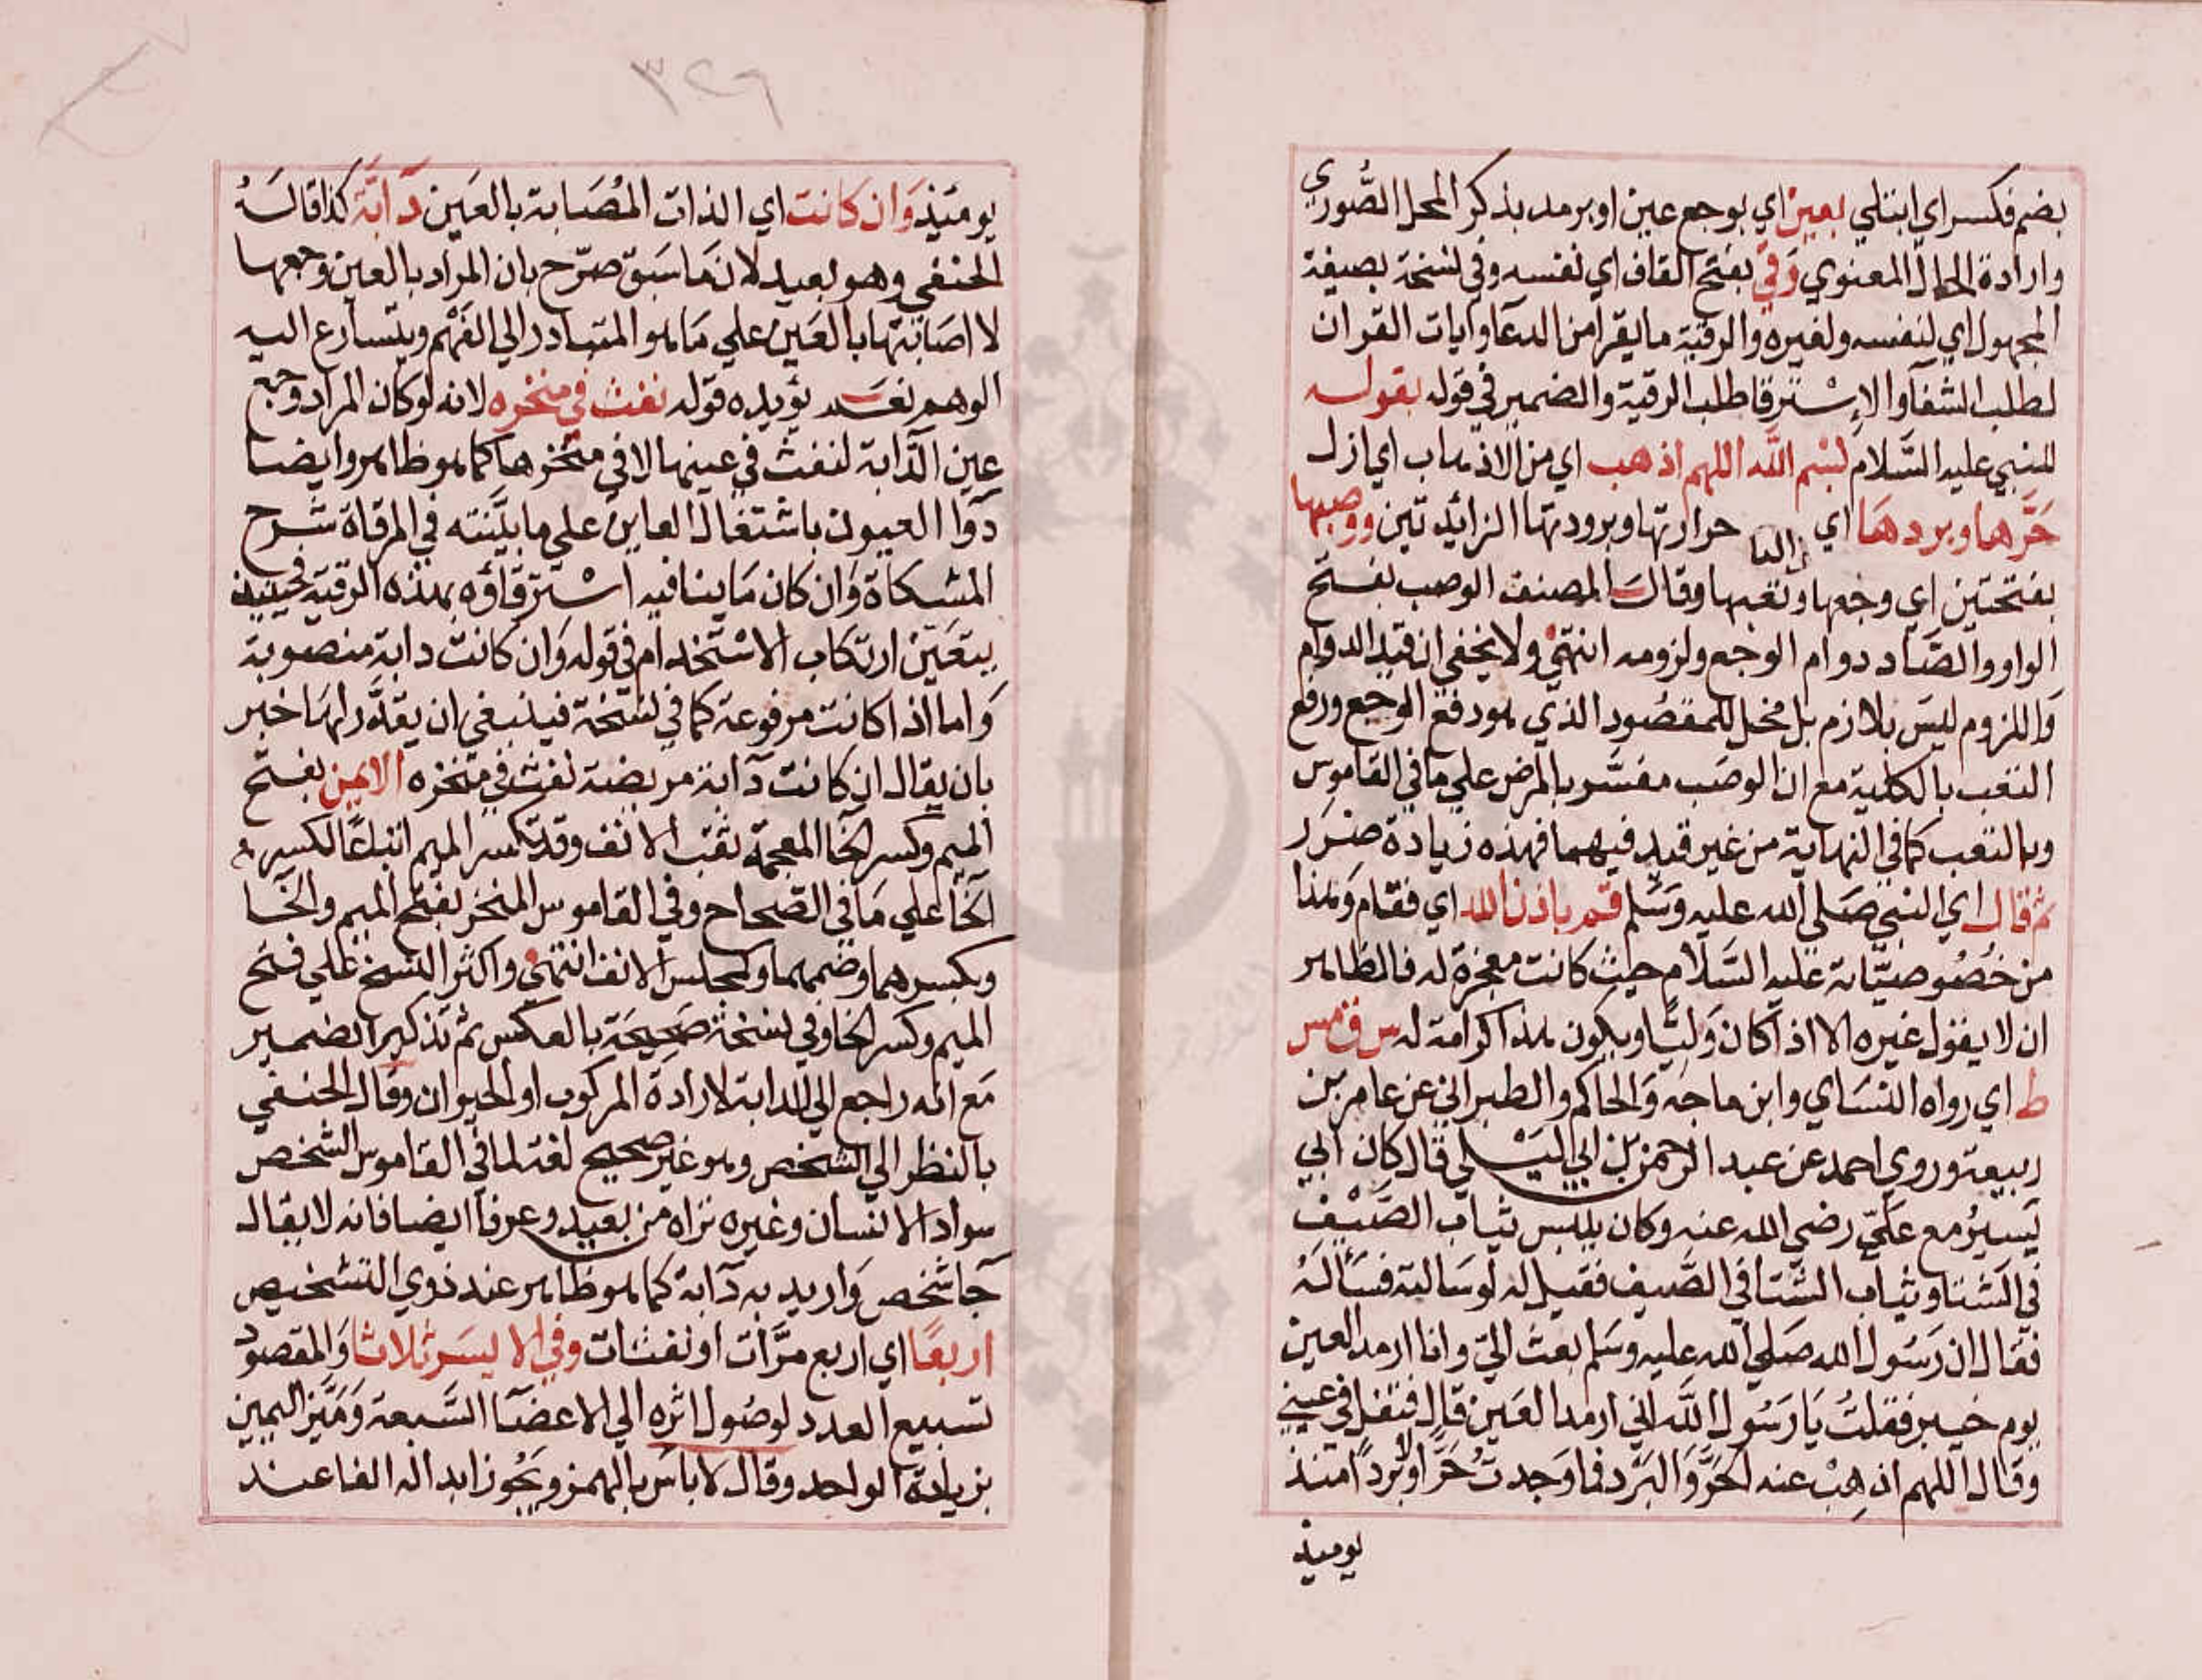 بضم فكسر اي ابتلي بعين اي بوجع عين او برمد بذكر المحل الصُّوري
وارادة الحال المعنوي رَقي بفتح القاف اي نفسه وفي نسخة بصيغة
المجهول اي لنفسه ولغيره والرقية ما يقرا من الدعآ وايات القران
لطلب الشفآ والإسْترقا طلب الرقية والضمير في قوله بقوله
للنبي عليه السَّلام بسْم اللَّه اللهم اذهب اي من الاذهاب اي ازل
حَرَّها وبردهَا اي حرارتها وبرودتها الزائدتين ووصبها
بفتحتين اي وجعها وتعبها وقال المصنف الوصب بفتح
الواو والصَّاد دوام الوجع ولزومه انتهيٰ ولا يخفي ان قيد الدوام
وَاللزوم ليسَ بلازم بل مخل للمقصُود الذي هو دفع الوجع ورفع
التعب بالكلية مع ان الوصَب مفسَّر بالمرض علي مَا في القاموس
وبالتعب كما في النهاية من غير قيد فيهما فهذه زيادة ضرَر
ثم قال اي النبي صَلي الله عليه وَسَلم قم باذن الله اي فقام وَهذا
من خصُوصيّاته عَليه السَّلام حيث كانت معجزة له فالظاهر
ان لا يقول غيره الا اذا كان وَليًّا ويكون هذا كرامة له س ق مس
ط اي رواه النسَاي وابن ماجَه وَالحاكم والطبراني عن عامر بن
ربيعة وروي احمد عن عبد الرحمن بن ابي ليْلي قال كان ابي
يَسيرُ مع عَليّ رضي الله عنه وكان يلبس ثياب الصَّيْف
في الشتا وثياب الشتا في الصَّيف فقيل له لو سَالته فسَألهُ
فقال ان رَسُول الله صَلي الله عليه وسَلم بعث اليّ وانا ارمد العين
يوم خيبر فقلتُ يَا رَسُول اللَّه اني ارمد العَين قال فتفل في عيني
وقال اللهم اذهِبْ عنه الحَرَّ وَالبَرْد فما وَجدتُ حَرًّا ولا بَردًا منذ
يوميذ
٣٢٦
يوميَذ وَان كانت اي الذات المُصَابة بالعَين دَابَّة كذا قالهُ
الحنفي وهو بعيد لان مَا سَبق صرّح بان المراد بالعين وجعها
لا اصَابتها بالعَين علي مَا هو المتبادر الي الفَهْم ويتسارع اليه
الوهم نعَم يؤيده قوله نفث في منخره لانه لو كان المراد وجع
عين الدَّابة لنفث في عينها لا في منخرها كما هو ظاهر وايضا
دَوآ العيون باشتغال العاين علي ما بيَّنته في المرقاة شرح
المشكاة وَان كان مَا ينافيه اسْترقاؤه بهذه الرقية فحينيذ
يتعَيّن ارتكاب الاسْتخدام في قوله وَان كانت دابة منصوبة
وَاما اذا كانت مرفوعة كما في نسْخة فينبغي ان يقدَّر لهَا خبر
بان يقال ان كانت دَابة مريضة نفث في منْخره الايمن بفتح
الميم وكسر الخَا المعجمة ثقب الانف وقد تكسر الميم اتباعًا لكسرة
الخَا علي مَا في الصّحاح وفي القاموس المنخر بفتح الميم والخَا
وبكسرهما وضمهما وكمجلس الانف انتهيٰ واكثر النسخ عَلي فتح
الميم وكسر الخا وفي نسخة صَحيحَة بالعكس ثم تذكير الضمير
مَع انه راجع الي الدابة لارادة المركوب او الحيوان وقال الحنفي
بالنظر الي الشخص وهو غير صحيح لغة لما في القاموس الشخص
سواد الانسان وغيره تراه من بعيد وعرفا ايضا فانه لا يقال
جَا شخص وَاريد به دَابة كما هو ظاهر عند ذوي التشخيص
اربعًا اي اربع مرَّات او نفثات وفي الايسَر ثلاثا وَالمقصود
تسبيع العدد لوصُول اثره الي الاعضآ السَّبعة وَمَيَّز اليمين
بزيادة الواحد وقال لا باسَ بالهمز ويَجُوز ابداله الفا عند